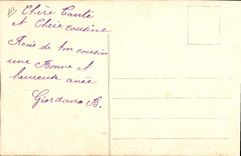 Chère Tante
et Chère cousine
Recois de ton cousin
une Bonne et
heureuse anée
Giordano B.